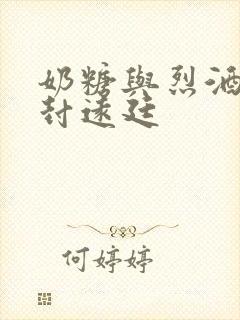 奶糖與烈酒
封遠廷
何婷婷